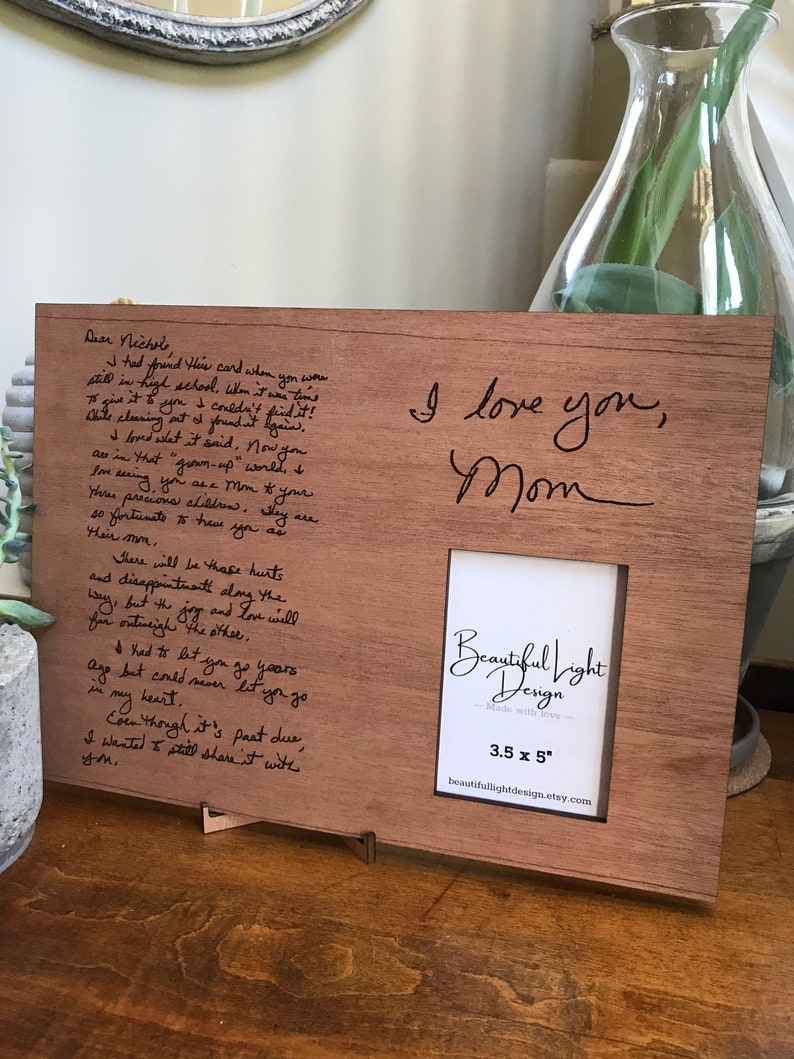 Dear Nichole,
I had found this card when you were
still in high school. When it was time
to give it to you I couldn't find it!
While cleaning out I found it again.
I loved what it said. Now you
are in that "grown-up" world. I
love seeing you as a Mom to your
three precious children. They are
so fortunate to have you as
their mom.
There will be those hurts
and disappointments along the
way, but th joy and love will
far outweigh the other.
I had to let you go years
ago but could never let you go
in my heart.
Even though it's past due,
I wanted to still share it with
you.
I love you,
Mom
Beautiful Light
Design
— Made with love —
3.5 x 5"
beautifullightdesign.etsy.com